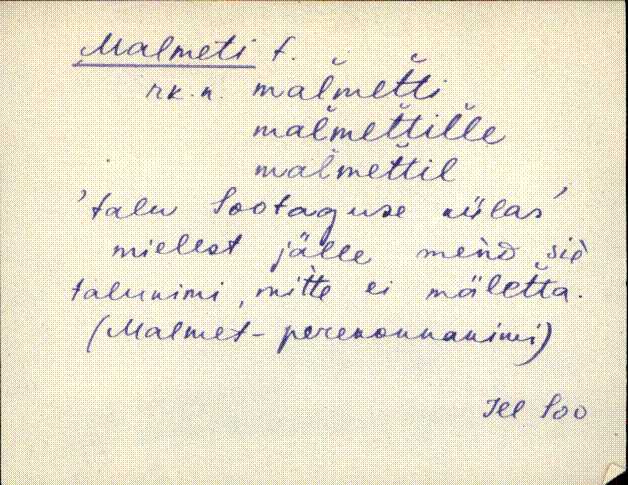 Malmeti t.
rk.n. mal̆met̆ti
mal̆met̆til̆le
mal̆met̆til
'talu Sootaguse külas'
mielest jälle mend siè
talunimi, mitte ei mälet̆ta.
(Malmet - perekonnanimi)
Jll Soo